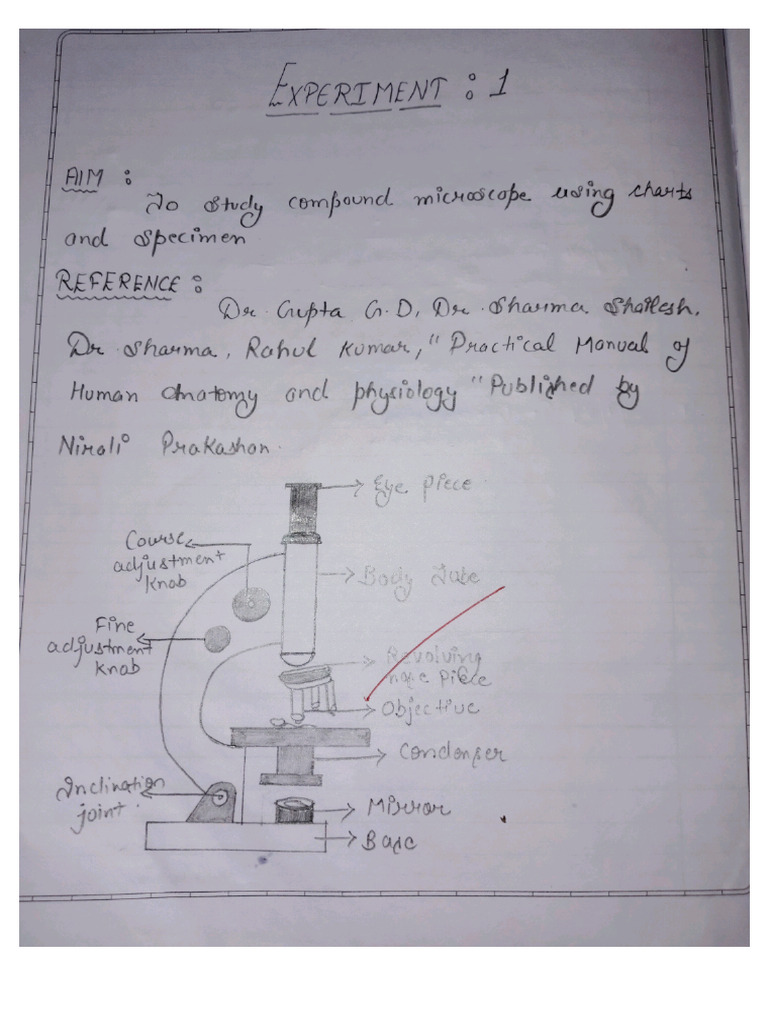 EXPERIMENT : 1
AIM :
To study compound microscope using charts
and specimen
REFERENCE :
Dr. Gupta G.D, Dr. Sharma Shailesh,
Dr Sharma, Rahul Kumar, "Practical Manual of
Human Anatomy and physiology" Published by
Nirali Prakashan.
Eye piece
Course
adjustment
knob
Body Tube
Fine
adjustment
knob
Revolving
nose piece
Objective
Condenser
Inclination
joint.
Mirror
Base